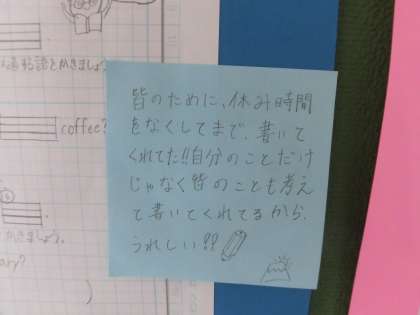 な形語をかきましょう
coffee?
皆のために、休み時間
をなくしてまで、書いて
くれてた!!自分のことだけ
じゃなく皆のことも考え
て書いてくれてるから、
うれしい??
かきましょう。
ary?
)